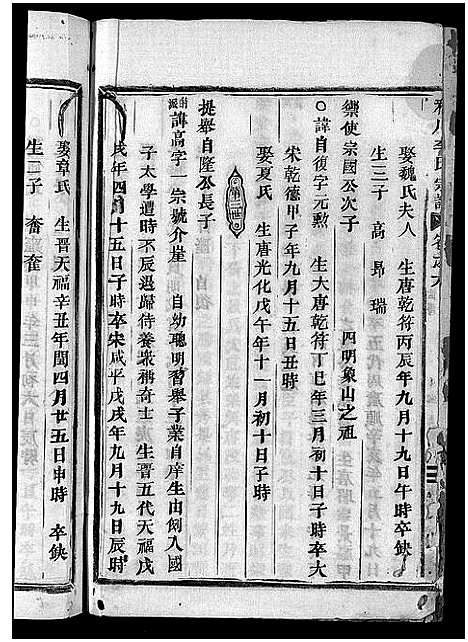 娶魏氏夫人　生唐乾符丙辰年九月十九日午時卒缺
生三子　高　昂　瑞
禦使宗國公次子　四明象山之祖
○諱自復字元勲　生大唐乾符丁巳年三月初十日子時卒大
宋乾德甲子年九月十五日丑時
娶夏氏　生唐光化戊午年十一月初十日子時
第二世
提舉自隆公長子
諱高字一　崇號介崖　自幼聰明習舉子業自庠生由例入國
子太學遭時不辰退歸待養衆稱奇士　生晉五代天福戊
戌年四月十五日子時卒宋咸平戊戌年九月十九日辰時
娶章氏　生晉天福辛丑年閏四月廿五日申時　卒缺
生二子